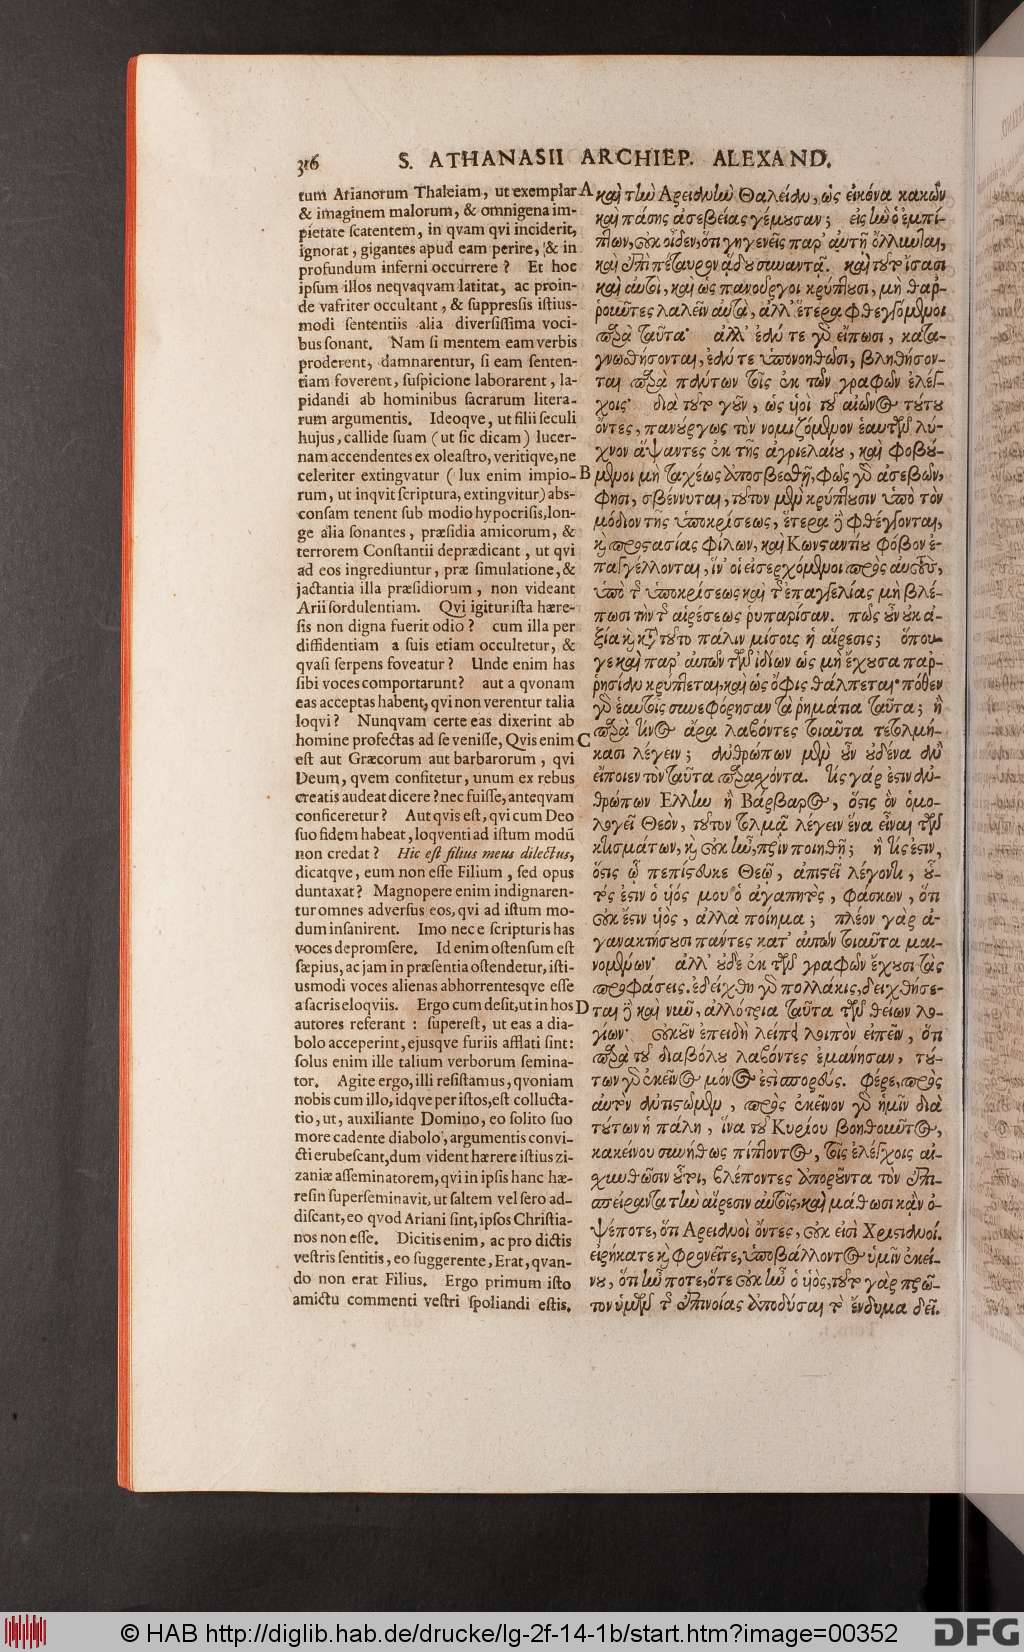 316 S. ATHANASII ARCHIEP. ALEXAND.
tum Arianorum Thaleiam, ut exemplar
& imaginem malorum, & omnigena im-
pietate scatentem, in qvam qvi inciderit,
ignorat, gigantes apud eam perire, & in
profundum inferni occurrere? Et hoc
ipsum illos neqvaqvam latitat, ac proin-
de vafriter occultant, & suppressis istius-
modi sententiis alia diversissima voci-
bus sonant. Nam si mentem eam verbis
proderent, damnarentur, si eam senten-
tiam foverent, suspicione laborarent, la-
pidandi ab hominibus sacrarum litera-
rum argumentis. Ideoqve, ut filii seculi
hujus, callide suam (ut sic dicam) lucer-
nam accendentes ex oleastro, veritiqve, ne
celeriter extingvatur (lux enim impio-
rum, ut inqvit scriptura, extingvitur) abs-
consam tenent sub modio hypocrisis, lon-
ge alia sonantes, præsidia amicorum, &
terrorem Constantii deprædicant, ut qvi
ad eos ingrediuntur, præ simulatione, &
jactantia illa præsidiorum, non videant
Arii sordulentiam. Qvi igitur ista hære-
sis non digna fuerit odio? cum illa per
diffidentiam a suis etiam occultetur, &
qvasi serpens foveatur? Unde enim has
sibi voces comportarunt? aut a qvonam
eas acceptas habent, qvi non verentur talia
loqvi? Nunqvam certe eas dixerint ab
homine profectas ad se venisse, Qvis enim
est aut Græcorum aut barbarorum, qvi
Deum, qvem confitetur, unum ex rebus
creatis audeat dicere? nec fuisse, anteqvam
conficeretur? Aut qvis est, qvi cum Deo
suo fidem habeat, loqventi ad istum modũ
non credat? Hic est filius meus dilectus,
dicatqve, eum non esse Filium, sed opus
duntaxat? Magnopere enim indignaren-
tur omnes adversus eos, qvi ad istum mo-
dum insanirent. Imo nec e scripturis has
voces depromsere. Id enim ostensum est
sæpius, ac jam in præsentia ostendetur, isti-
usmodi voces alienas abhorrentesqve esse
a sacris eloqviis. Ergo cum desit, ut in hos
autores referant: superest, ut eas a dia-
bolo acceperint, ejusqve furiis afflati sint:
solus enim ille talium verborum semina-
tor. Agite ergo, illi resistamus, qvoniam
nobis cum illo, idqve per istos, est collucta-
tio, ut, auxiliante Domino, eo solito suo
more cadente diabolo, argumentis convi-
cti erubescant, dum vident hærere istius zi-
zaniæ asseminatorem, qvi in ipsis hanc hæ-
resin superseminavit, ut saltem vel sero ad-
discant, eo qvod Ariani sint, ipsos Christia-
nos non esse. Dicitis enim, ac pro dictis
vestris sentitis, eo suggerente, Erat, qvan-
do non erat Filius. Ergo primum isto
amictu commenti vestri spoliandi estis.
A
B
C
D
καὶ τὴν Ἀρειανὴν Θαλείαν, ὡς εἰκόνα κακῶν
καὶ πάσης ἀσεβείας γέμουσαν; εἰς ἣν ὁ ἐμπί-
πτων, οὐκ οἶδεν, ὅτι γηγενεῖς παρ' αὐτῇ ὄλλυνται,
καὶ ἐπὶ πέταυρον ᾅδου συναντᾷ. καὶ τοῦτο ἴσασι
καὶ αὐτοὶ, καὶ ὡς πανοῦργοι κρύπτουσι, μὴ θαρ-
ῥοῦντες λαλεῖν αὐτὰ, ἀλλ' ἕτερα φθεγγόμενοι
παρὰ ταῦτα· ἀλλ' ἐάν τε γὰρ εἴπωσι, κατα-
γνωθήσονται, ἐάν τε ὑπονοηθῶσι, βληθήσον-
ται παρὰ πάντων τοῖς ἐκ τῶν γραφῶν ἐλέγ-
χοις· διὰ τοῦτο γοῦν, ὡς υἱοὶ τοῦ αἰῶνος τούτου
ὄντες, πανούργως τὸν νομιζόμενον ἑαυτῶν λύ-
χνον ἅψαντες ἐκ τῆς ἀγριελαίου, καὶ φοβού-
μενοι μὴ ταχέως ἀποσβεσθῇ, φῶς γὰρ ἀσεβῶν,
φησι, σβέννυται, τοῦτον μὲν κρύπτουσιν ὑπὸ τὸν
μόδιον της ὑποκρίσεως, ἕτερα δὲ φθέγγονται,
καὶ προστασίας φίλων, καὶ Κωνσταντίου φόβον ἐ-
παγγέλλονται, ἵν' οἱ εἰσερχόμενοι πρὸς αὐτοὺς,
ὑπὸ τῆς ὑποκρίσεως καὶ τῆς ἐπαγγελίας μὴ βλέ-
πωσι τὴν τῆς αἱρέσεως ῥυπαρίαν. πῶς οὖν οὐκ ἀ-
ξία καὶ κατὰ τοῦτο πάλιν μίσους ἡ αἵρεσις; ὅπου-
γε καὶ παρ' αὐτῶν τῶν ἰδίων ὡς μὴ ἔχουσα παρ-
ῥησίαν κρύπτεται, καὶ ὡς ὄφις θάλπεται· πόθεν
γὰρ ἑαυτοῖς συνεφόρησαν τὰ ῥημάτια ταῦτα; ἢ
παρὰ τίνος ἄρα λαβόντες τοιαῦτα τετολμή-
κασι λέγειν; ἀνθρώπων μὲν οὖν οὐδένα ἂν
εἴποιεν τὸν ταῦτα παρασχόντα. τίς γάρ ἐστιν ἀν-
θρώπων Ἕλλην ἢ Βάρβαρος, ὅστις ὃν ὁμο-
λογεῖ Θεὸν, τοῦτον τολμᾷ λέγειν ἕνα εἶναι τῶν
κτισμάτων, καὶ οὐκ ἦν, πρὶν ποιηθῇ; ἢ τίς ἐστιν,
ὅστις ᾧ πεπίστευκε Θεῷ, ἀπιστεῖ λέγοντι, οὗ-
τός ἐστιν ὁ υἱός μου ὁ ἀγαπητὸς, φάσκων, ὅτι
οὐκ ἔστιν υἱὸς, ἀλλὰ ποίημα; πλέον γὰρ ἀ-
γανακτήσουσι πάντες κατ' αὐτῶν τοιαῦτα μαι-
νομένων· ἀλλ' οὐδὲ ἐκ τῶν γραφῶν ἔχουσι τὰς
προφάσεις. ἐδείχθη γὰρ πολλάκις, δειχθήσε-
ται δὲ καὶ νῦν, ἀλλότρια ταῦτα τῶν θείων λο-
γίων· οὐκοῦν ἐπειδὴ λείπει λοιπὸν εἰπεῖν, ὅτι
παρὰ τοῦ διαβόλου λαβόντες ἐμάνησαν, τού-
των γὰρ ἐκεῖνος μόνος ἐστὶ σπορεύς. φέρε, πρὸς
αὐτὸν ἀντιστῶμεν, πρὸς ἐκεῖνον γὰρ ἡμῖν διὰ
τούτων ἡ πάλη, ἵνα τοῦ Κυρίου βοηθοῦντος,
κἀκείνου συνήθως πίπτοντος, τοῖς ἐλέγχοις αἰ-
σχυνθῶσιν οὗτοι, βλέποντες ἀποροῦντα τὸν ἐπι-
σπείραντα τὴν αἵρεσιν αὐτοῖς, καὶ μάθωσι κἂν ὀ-
ψέποτε, ὅτι Ἀρειανοὶ ὄντες, οὐκ εἰσὶ Χριστιανοί.
εἰρήκατε καὶ φρονεῖτε, ὑποβάλλοντος ὑμῖν ἐκεί-
νου, ὅτι ἦν ποτε, ὅτε οὐκ ἦν ὁ υἱὸς, τοῦτο γὰρ πρῶ-
τον ὑμῶν τῆς ἐπινοίας ἀποδύσαι τὸ ἔνδυμα δεῖ.
© HAB http://diglib.hab.de/drucke/lg-2f-14-1b/start.htm?image=00352
DFG